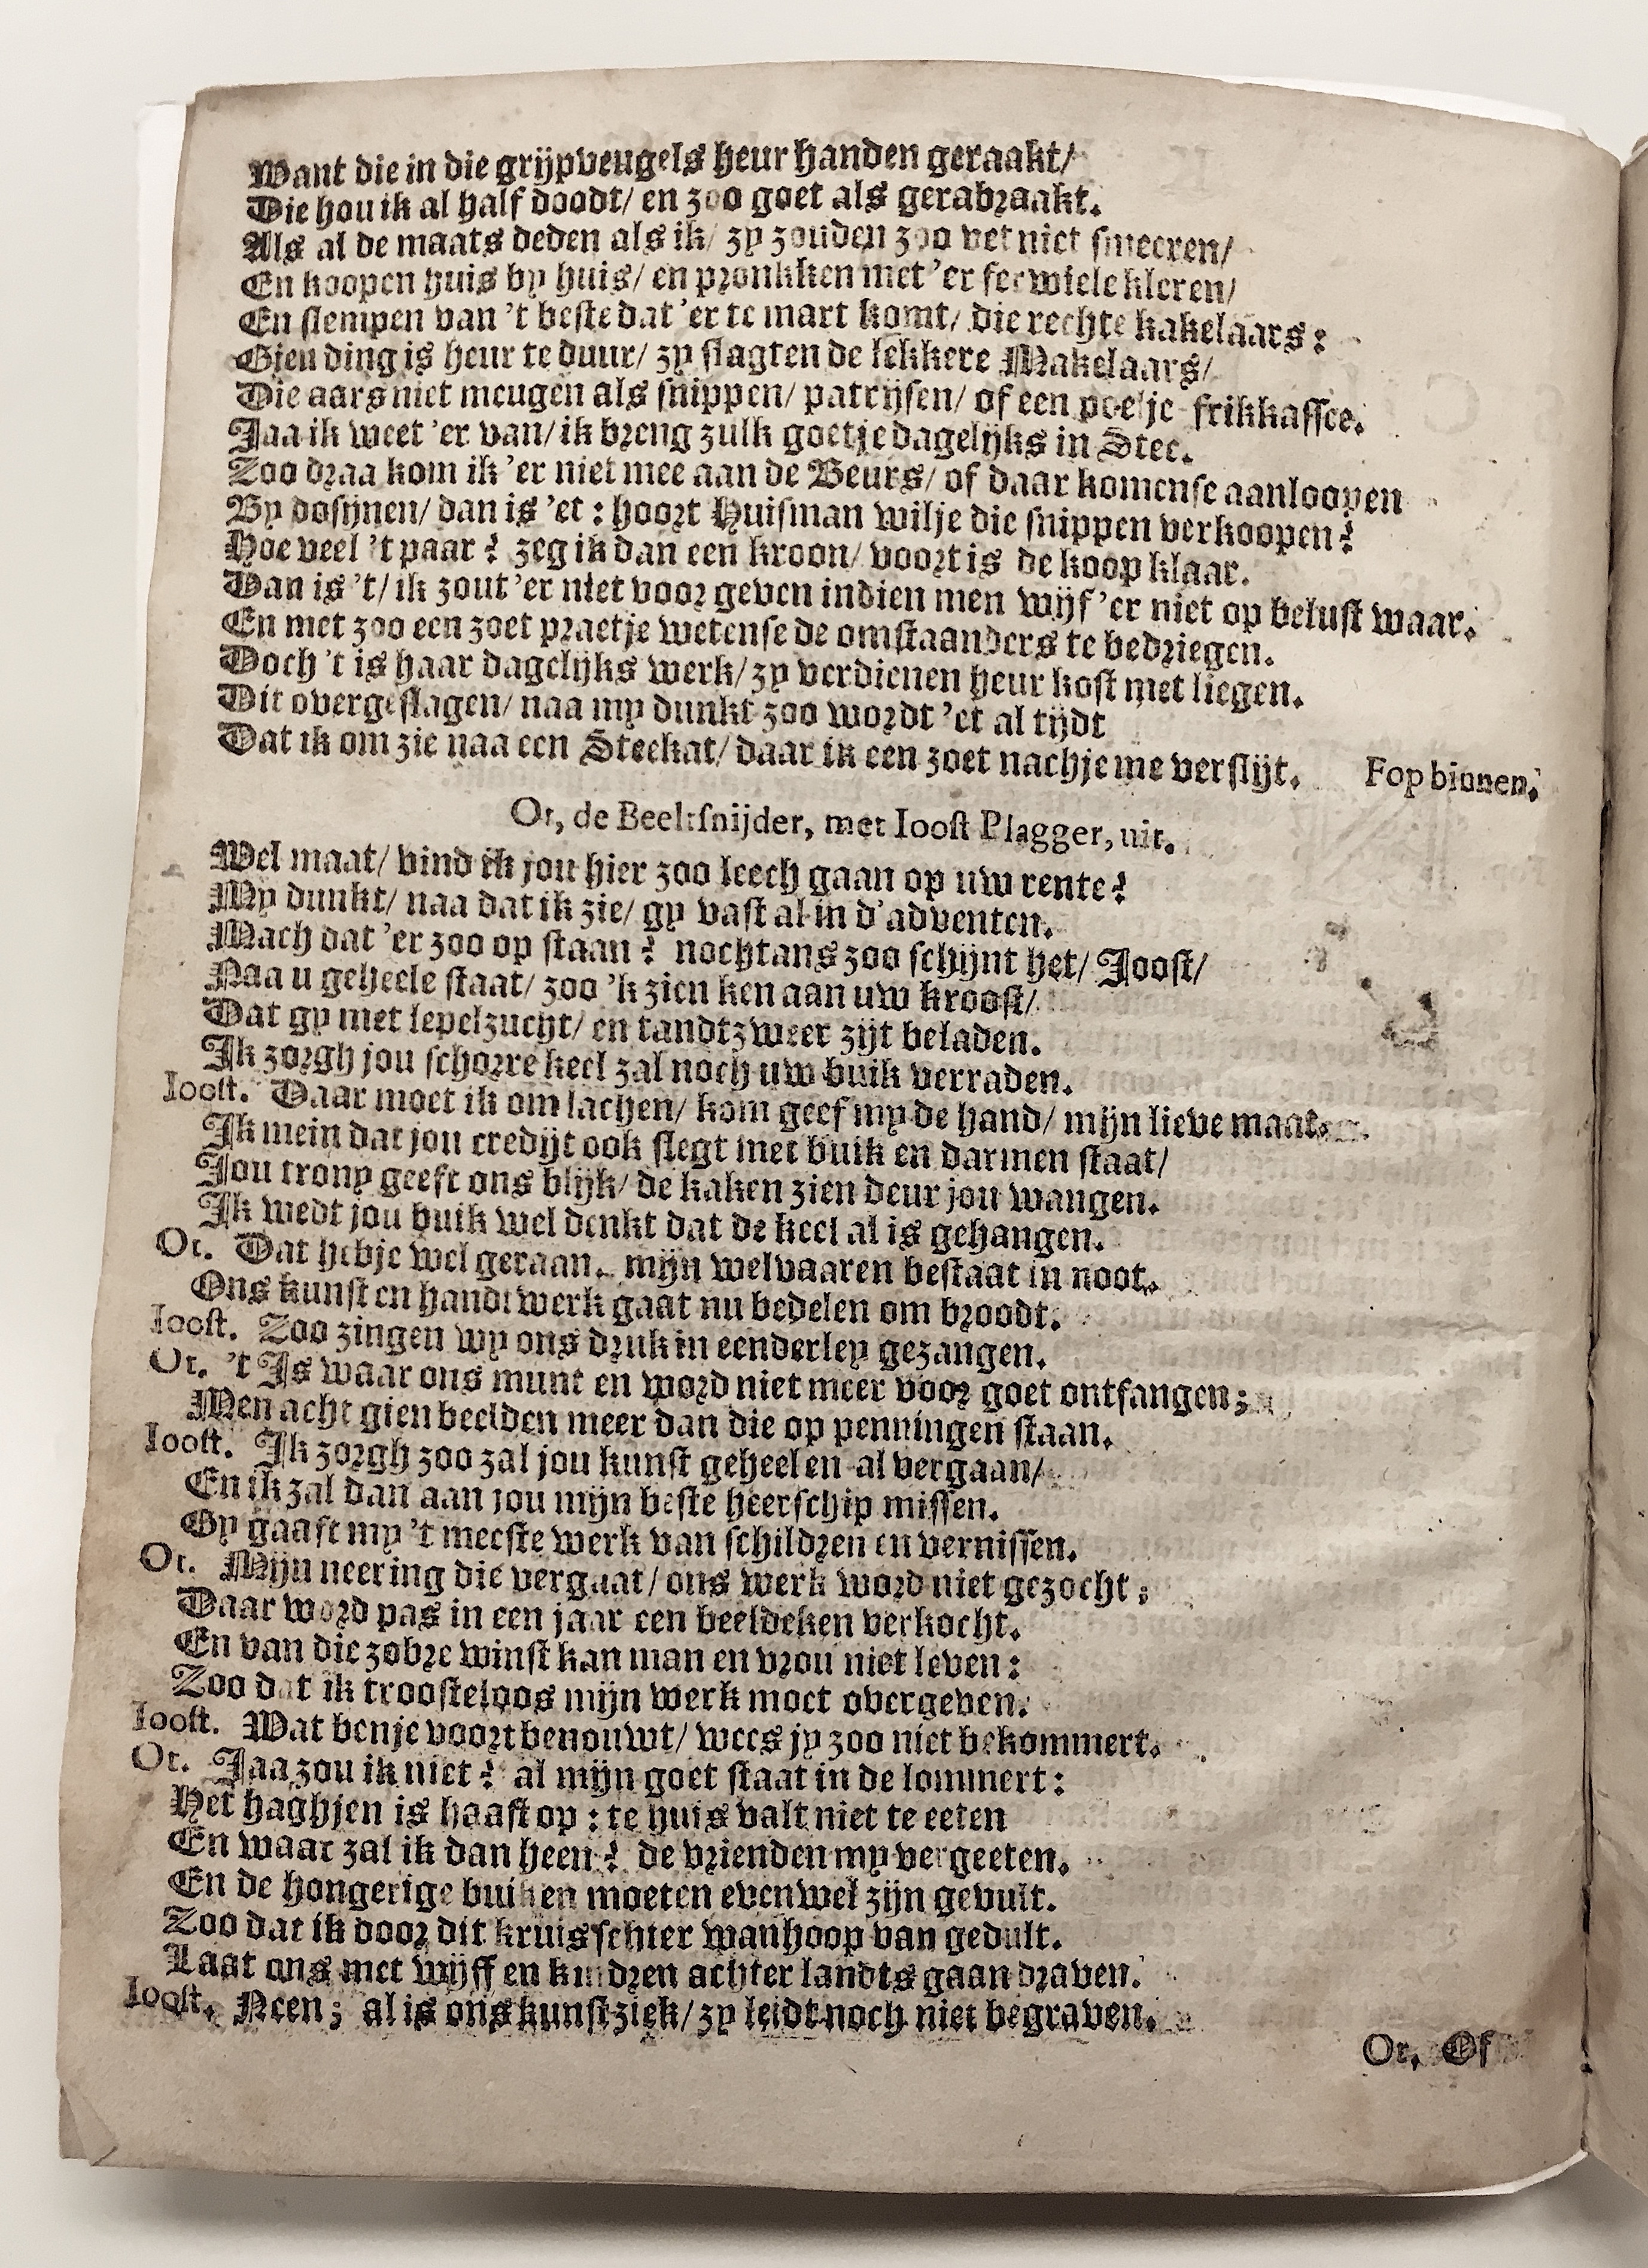 Want die in die grijpveugels heur handen geraakt/
Die hou ik al half doodt/ en zoo goet als gerabraakt.
Als al de maats deden als ik/ zy zouden zoo vet niet smeeren/
En koopen huis by huis/ en pronkken met 'er ferwiele kleren/
En slempen van 't beste dat 'er te mart komt/ die rechte kakelaars:
Gien ding is heur te duur/ zy slagten de lekkere Makelaars/
Die aars niet meugen als snippen/ patrijsen/ of een poetje frikkassee.
Jaa ik weet 'er van/ ik breng zulk goetje dagelijks in Stee.
Zoo draa kom ik 'er niet mee aan de Beurs/ of daar komense aanloopen
By dosijnen/ dan is 'et: hoort Huisman wilje die snippen verkoopen?
Hoe veel 't paar? zeg ik dan een kroon/ voort is de koop klaar.
Dan is 't/ ik zout 'er niet voor geven indien men wijf 'er niet op belust waar.
En met zoo een zoet praetje wetense de omstaanders te bedriegen.
Doch 't is haar dagelijks werk/ zy verdienen heur kost met liegen.
Dit overgeslagen/ naa my dunkt zoo wordt 'et al tijdt
Dat ik om zie naa een Steekat/ daar ik een zoet nachje me verslijt. Fop binnen.
Or, de Beeltsnijder, met Ioost Plagger, uit.
Wel maat/ vind ik jou hier zoo leech gaan op uw rente?
My dunkt/ naa dat ik zie/ gy vast al in d'adventen.
Mach dat 'er zoo op staan? nochtans zoo schijnt het/ Joost/
Naa u geheele staat/ zoo 'k zien ken aan uw kroost/
Dat gy met lepelzucht/ en tandtzweer zijt beladen.
Ik zorgh jou schorre keel zal noch uw buik verraden.
Ioost. Daar moet ik om lachen/ kom geef my de hand/ mijn lieve maat.
Ik mein dat jou credijt ook slegt met buik en darmen staat/
Jou trony geeft ons blijk/ de kaken zien deur jou wangen.
Ik wedt jou buik wel denkt dat de keel al is gehangen.
Or. Dat hebje wel geraan. mijn welvaaren bestaat in noot.
Ons kunst en handtwerk gaat nu bedelen om broodt.
Ioost. Zoo zingen wy ons druk in eenderley gezangen.
Or. 't Is waar ons munt en word niet meer voor goet ontfangen;
Men acht gien beelden meer dan die op penningen staan.
Ioost. Ik zorgh zoo zal jou kunst geheel en al vergaan/
En ik zal dan aan jou mijn beste heerschip missen.
Gy gaaft my 't meeste werk van schildren en vernissen.
Or. Mijn neering die vergaat/ ons werk word niet gezocht;
Daar word pas in een jaar een beeldeken verkocht.
En van die zobre winst kan man en vrou niet leven:
Zoo dat ik troosteloos mijn werk moet overgeven.
Ioost. Wat benje voort benouwt/ wees jy zoo niet bekommert.
Or. Jaa zou ik niet? al mijn goet staat in de lommert:
Het haghjen is haast op: te huis valt niet te eeten
En waar zal ik dan heen? de vrienden my vergeeten.
En de hongerige buiken moeten evenwel zijn gevult.
Zoo dat ik door dit kruis schier wanhoop van gedult.
Laat ons met wijff en kindren achter landts gaan draven.
Ioost. Neen; al is ons kunst ziek/ zy leidt noch niet begraven.
Or. Of